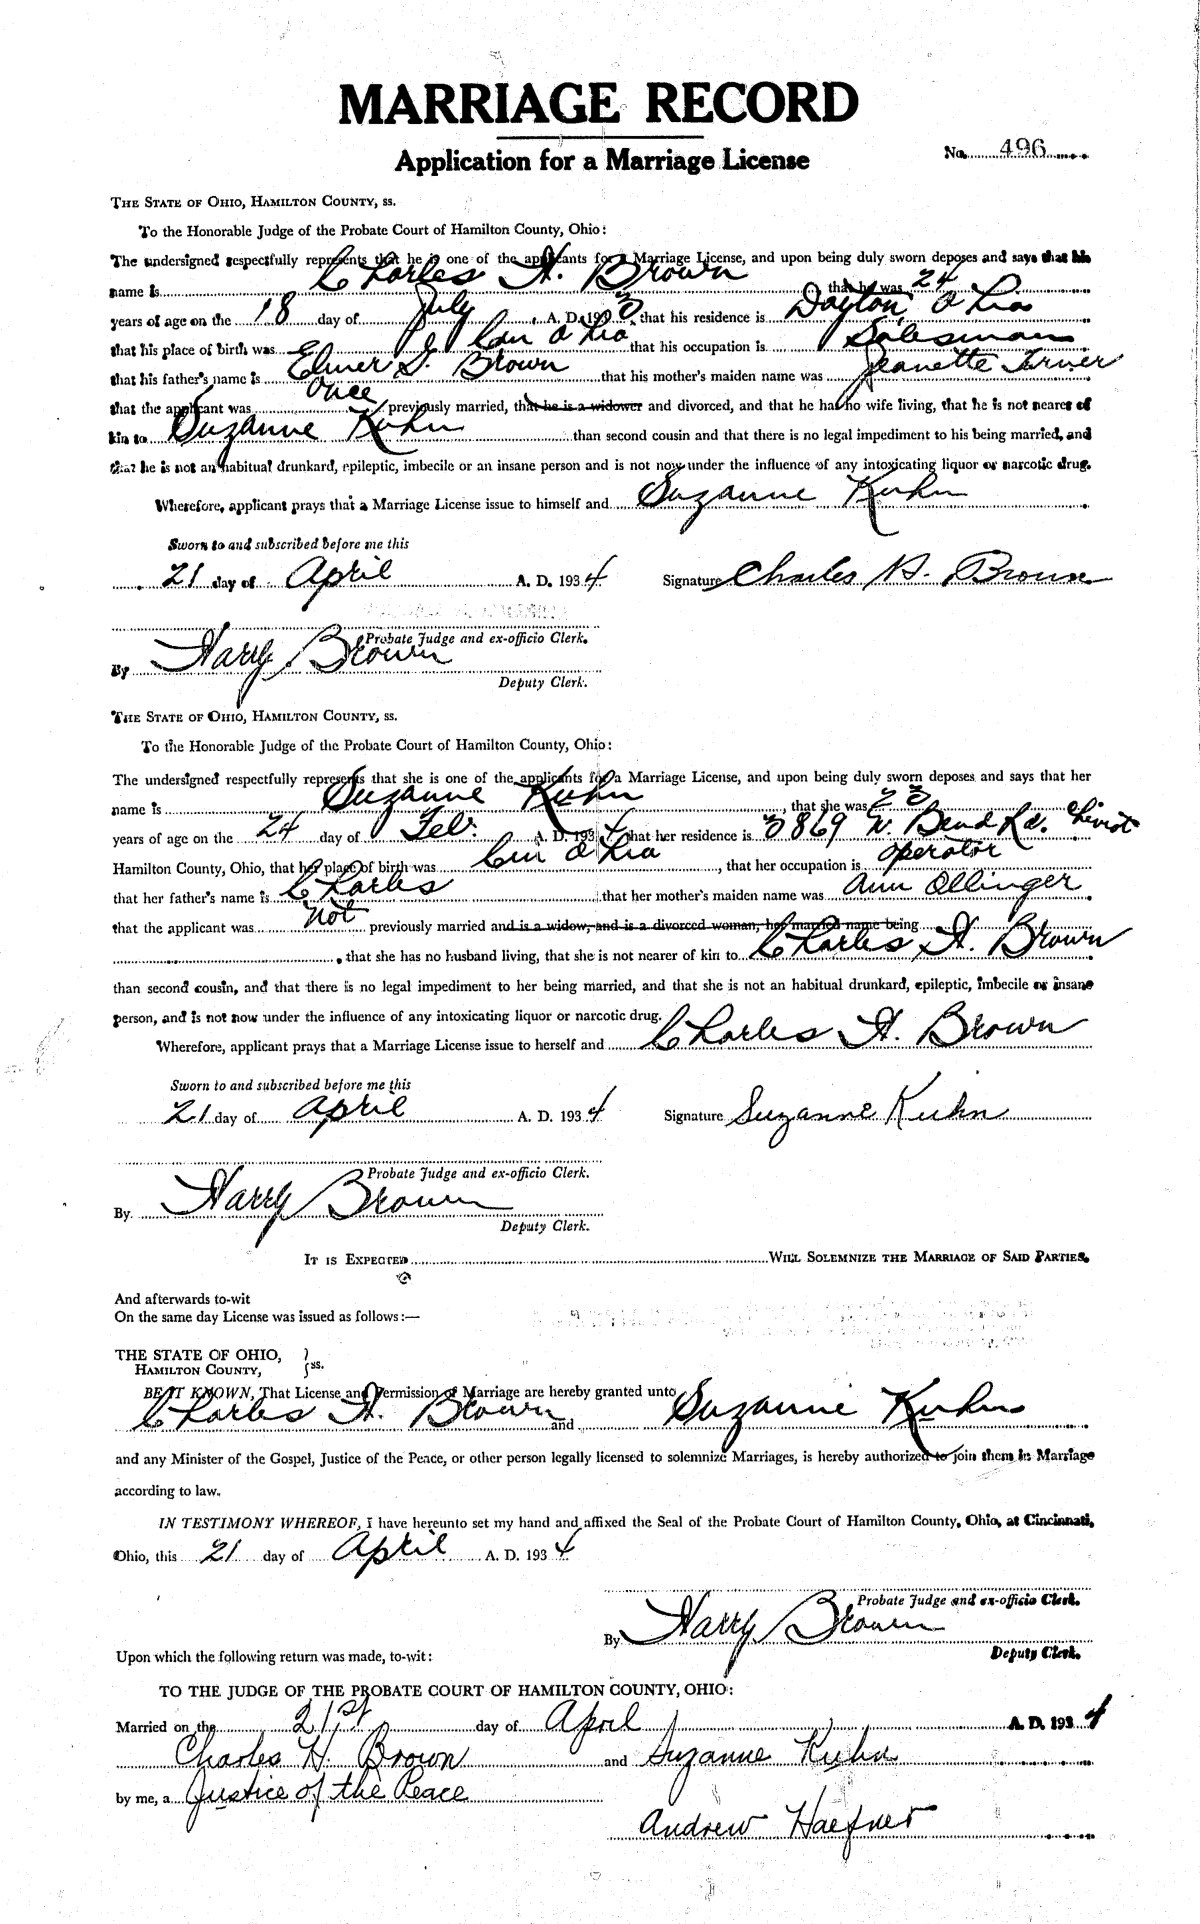 MARRIAGE RECORD
Application for a Marriage License
No. 496
THE STATE OF OHIO, HAMILTON COUNTY, ss.
To the Honorable Judge of the Probate Court of Hamilton County, Ohio:
The undersigned respectfully represents that he is one of the applicants for a Marriage License, and upon being duly sworn deposes and says that his
name is Charles H. Brown that he was 24
years of age on the 18 day of July, A. D. 193 3, that his residence is Dayton, Ohio
that his place of birth was Cin Ohio that his occupation is Salesman
that his father's name is Elmer G. Brown that his mother's maiden name was Jeanette Turner
that the applicant was once previously married, that he is a widower and divorced, and that he has no wife living, that he is not nearer of
kin to Suzanne Kuhn than second cousin and that there is no legal impediment to his being married, and
that he is not an habitual drunkard, epileptic, imbecile or an insane person and is not now under the influence of any intoxicating liquor or narcotic drug.
Wherefore, applicant prays that a Marriage License issue to himself and Suzanne Kuhn
Sworn to and subscribed before me this
21 day of April A. D. 1934 Signature Charles H. Brown
Probate Judge and ex-officio Clerk.
By Harry Brown
Deputy Clerk.
THE STATE OF OHIO, HAMILTON COUNTY, ss.
To the Honorable Judge of the Probate Court of Hamilton County, Ohio:
The undersigned respectfully represents that she is one of the applicants for a Marriage License, and upon being duly sworn deposes and says that her
name is Suzanne Kuhn, that she was 23
years of age on the 24 day of Feb. A. D. 1934 that her residence is 3869 W. Bend Rd. Cheviot
Hamilton County, Ohio, that her place of birth was Cin Ohio, that her occupation is operator
that her father's name is Charles that her mother's maiden name was Ann Ollinger
that the applicant was not previously married and is a widow, and is a divorced woman, her married name being
, that she has no husband living, that she is not nearer of kin to Charles H. Brown
than second cousin, and that there is no legal impediment to her being married, and that she is not an habitual drunkard, epileptic, imbecile or insane
person, and is not now under the influence of any intoxicating liquor or narcotic drug.
Wherefore, applicant prays that a Marriage License issue to herself and Charles H. Brown
Sworn to and subscribed before me this
21 day of April A. D. 1934 Signature Suzanne Kuhn
Probate Judge and ex-officio Clerk.
By Harry Brown
Deputy Clerk.
IT IS EXPECTED WILL SOLEMNIZE THE MARRIAGE OF SAID PARTIES.
And afterwards to-wit
On the same day License was issued as follows:—
THE STATE OF OHIO,
HAMILTON COUNTY, } ss.
BE IT KNOWN, That License and Permission of Marriage are hereby granted unto
Charles H. Brown and Suzanne Kuhn
and any Minister of the Gospel, Justice of the Peace, or other person legally licensed to solemnize Marriages, is hereby authorized to join them in Marriage
according to law.
IN TESTIMONY WHEREOF, I have hereunto set my hand and affixed the Seal of the Probate Court of Hamilton County, Ohio, at Cincinnati,
Ohio, this 21 day of April A. D. 1934
Probate Judge and ex-officio Clerk.
By Harry Brown
Deputy Clerk.
Upon which the following return was made, to-wit:
TO THE JUDGE OF THE PROBATE COURT OF HAMILTON COUNTY, OHIO:
Married on the 21st day of April A. D. 1934
Charles H. Brown and Suzanne Kuhn
by me, a Justice of the Peace
Andrew Haefner